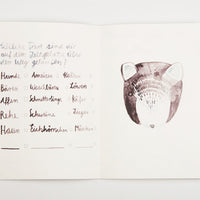 Welche Tiere sind dir
auf dem Zeitgeist über
den Weg gelaufen?
Hunde Ameisen Katzen
Bären Waschbären Löwen
Affen Schmetterlinge Käfer
Rehe Schweine Ziegen
Hasen Eichhörnchen Mücken